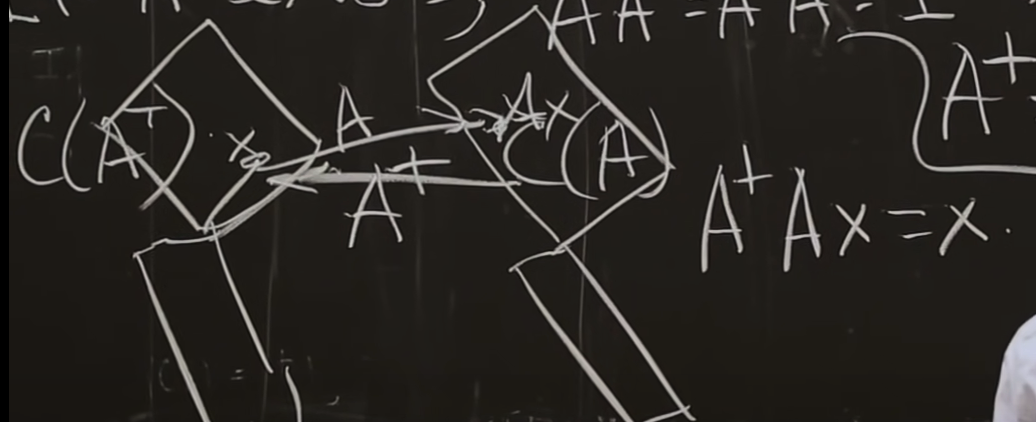 A A = A A = I
A⁺
C(Aᵀ) x A Ax C(A)
A⁺
A⁺ A x = x.